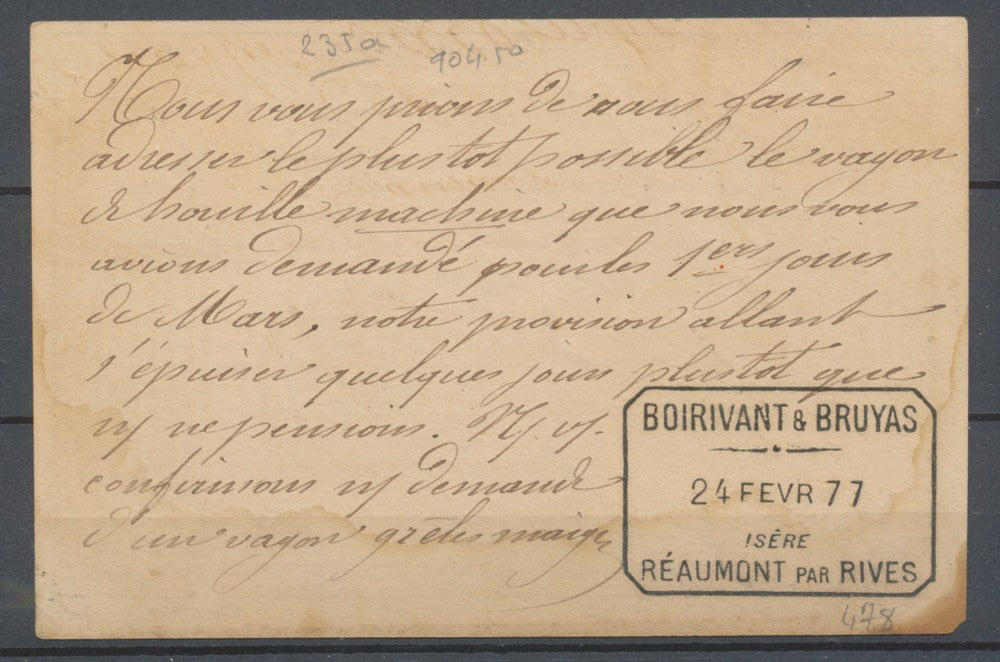 235a
904.50
Nous vous prions de nous faire
adresser le plustot possible le vagon
de houille machine que nous vous
avions demandé pour les 1ers jours
de Mars, notre provision allant
s'épuiser quelques jours plustot que
ns ne pensions. N. vs.
confirmons ns demande
d'un vagon grêles maigr
BOIRIVANT & BRUYAS
24 FEVR 77
ISÈRE
RÉAUMONT PAR RIVES
478